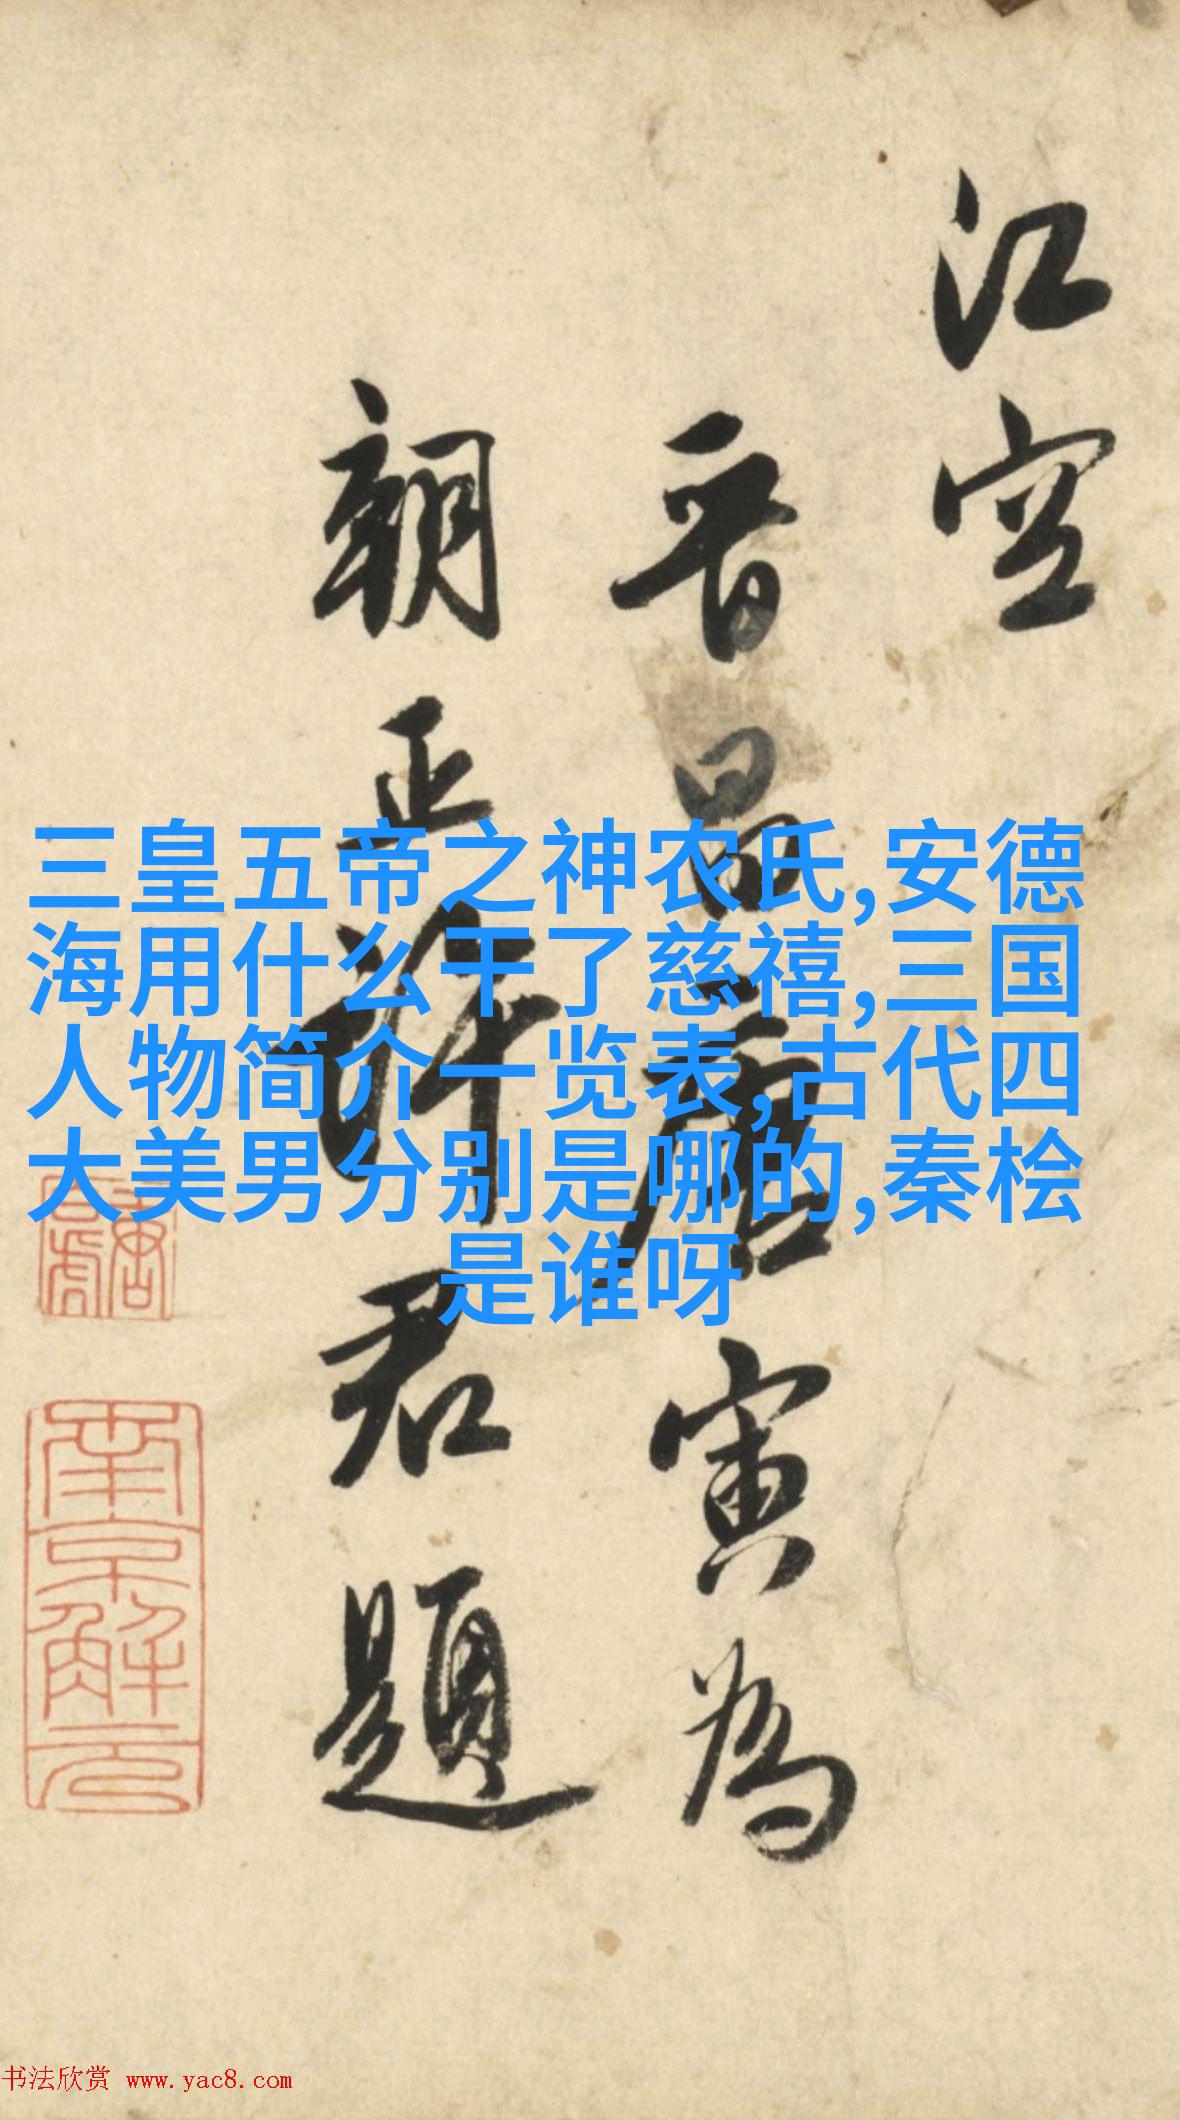 江空
晋昌唐寅為
朝正許君題
三皇五帝之神农氏,安德
海用什么干了慈禧,三国
人物简介一览表,古代四
大美男分别是哪的,秦桧
是谁呀
南京解元
书法欣赏 www.yac8.com